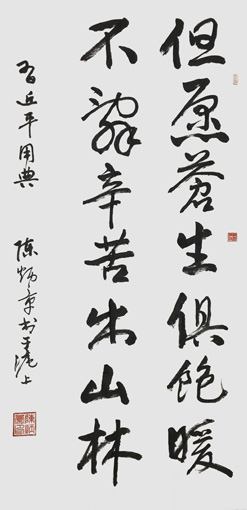 但愿苍生俱饱暖
不辞辛苦出山林
习近平用典
陈炳章书于沪上